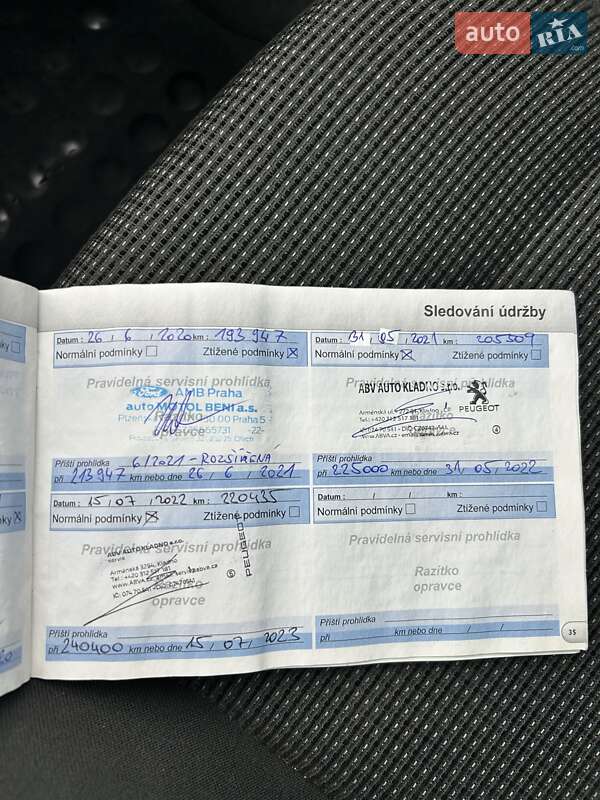 auto RIA.com
Sledování údržby
Datum : 26 , 6 , 2020 km : 193 947
Normální podmínky Ztížené podmínky
Pravidelná servisní prohlídka
AMB Praha
auto MOTOL BENI a.s.
Razítko
opravce
Příští prohlídka 6/2021 - ROZŠÍŘENÁ
při 113947 km nebo dne 26 , 6 , 2021
Datum : 31 , 05 , 2021 km : 205309
Normální podmínky Ztížené podmínky
Pravidelná servisní prohlídka
ABV AUTO KLADNO s.r.o.
PEUGEOT
Razítko
opravce
4
Příští prohlídka
při 225000 km nebo dne 31, 05, 2022
Datum : 15 , 07 , 2022 km : 220435
Normální podmínky Ztížené podmínky
Pravidelná servisní prohlídka
ABV AUTO KLADNO s.r.o.
servis
Arménská 3294, Kladno
Tel.: +420 312 517 181
PEUGEOT
5
opravce
Příští prohlídka
při 240400 km nebo dne 15 , 07 , 2023
Datum : / / km :
Normální podmínky Ztížené podmínky
Pravidelná servisní prohlídka
Razítko
opravce
Příští prohlídka
při km nebo dne / /
35